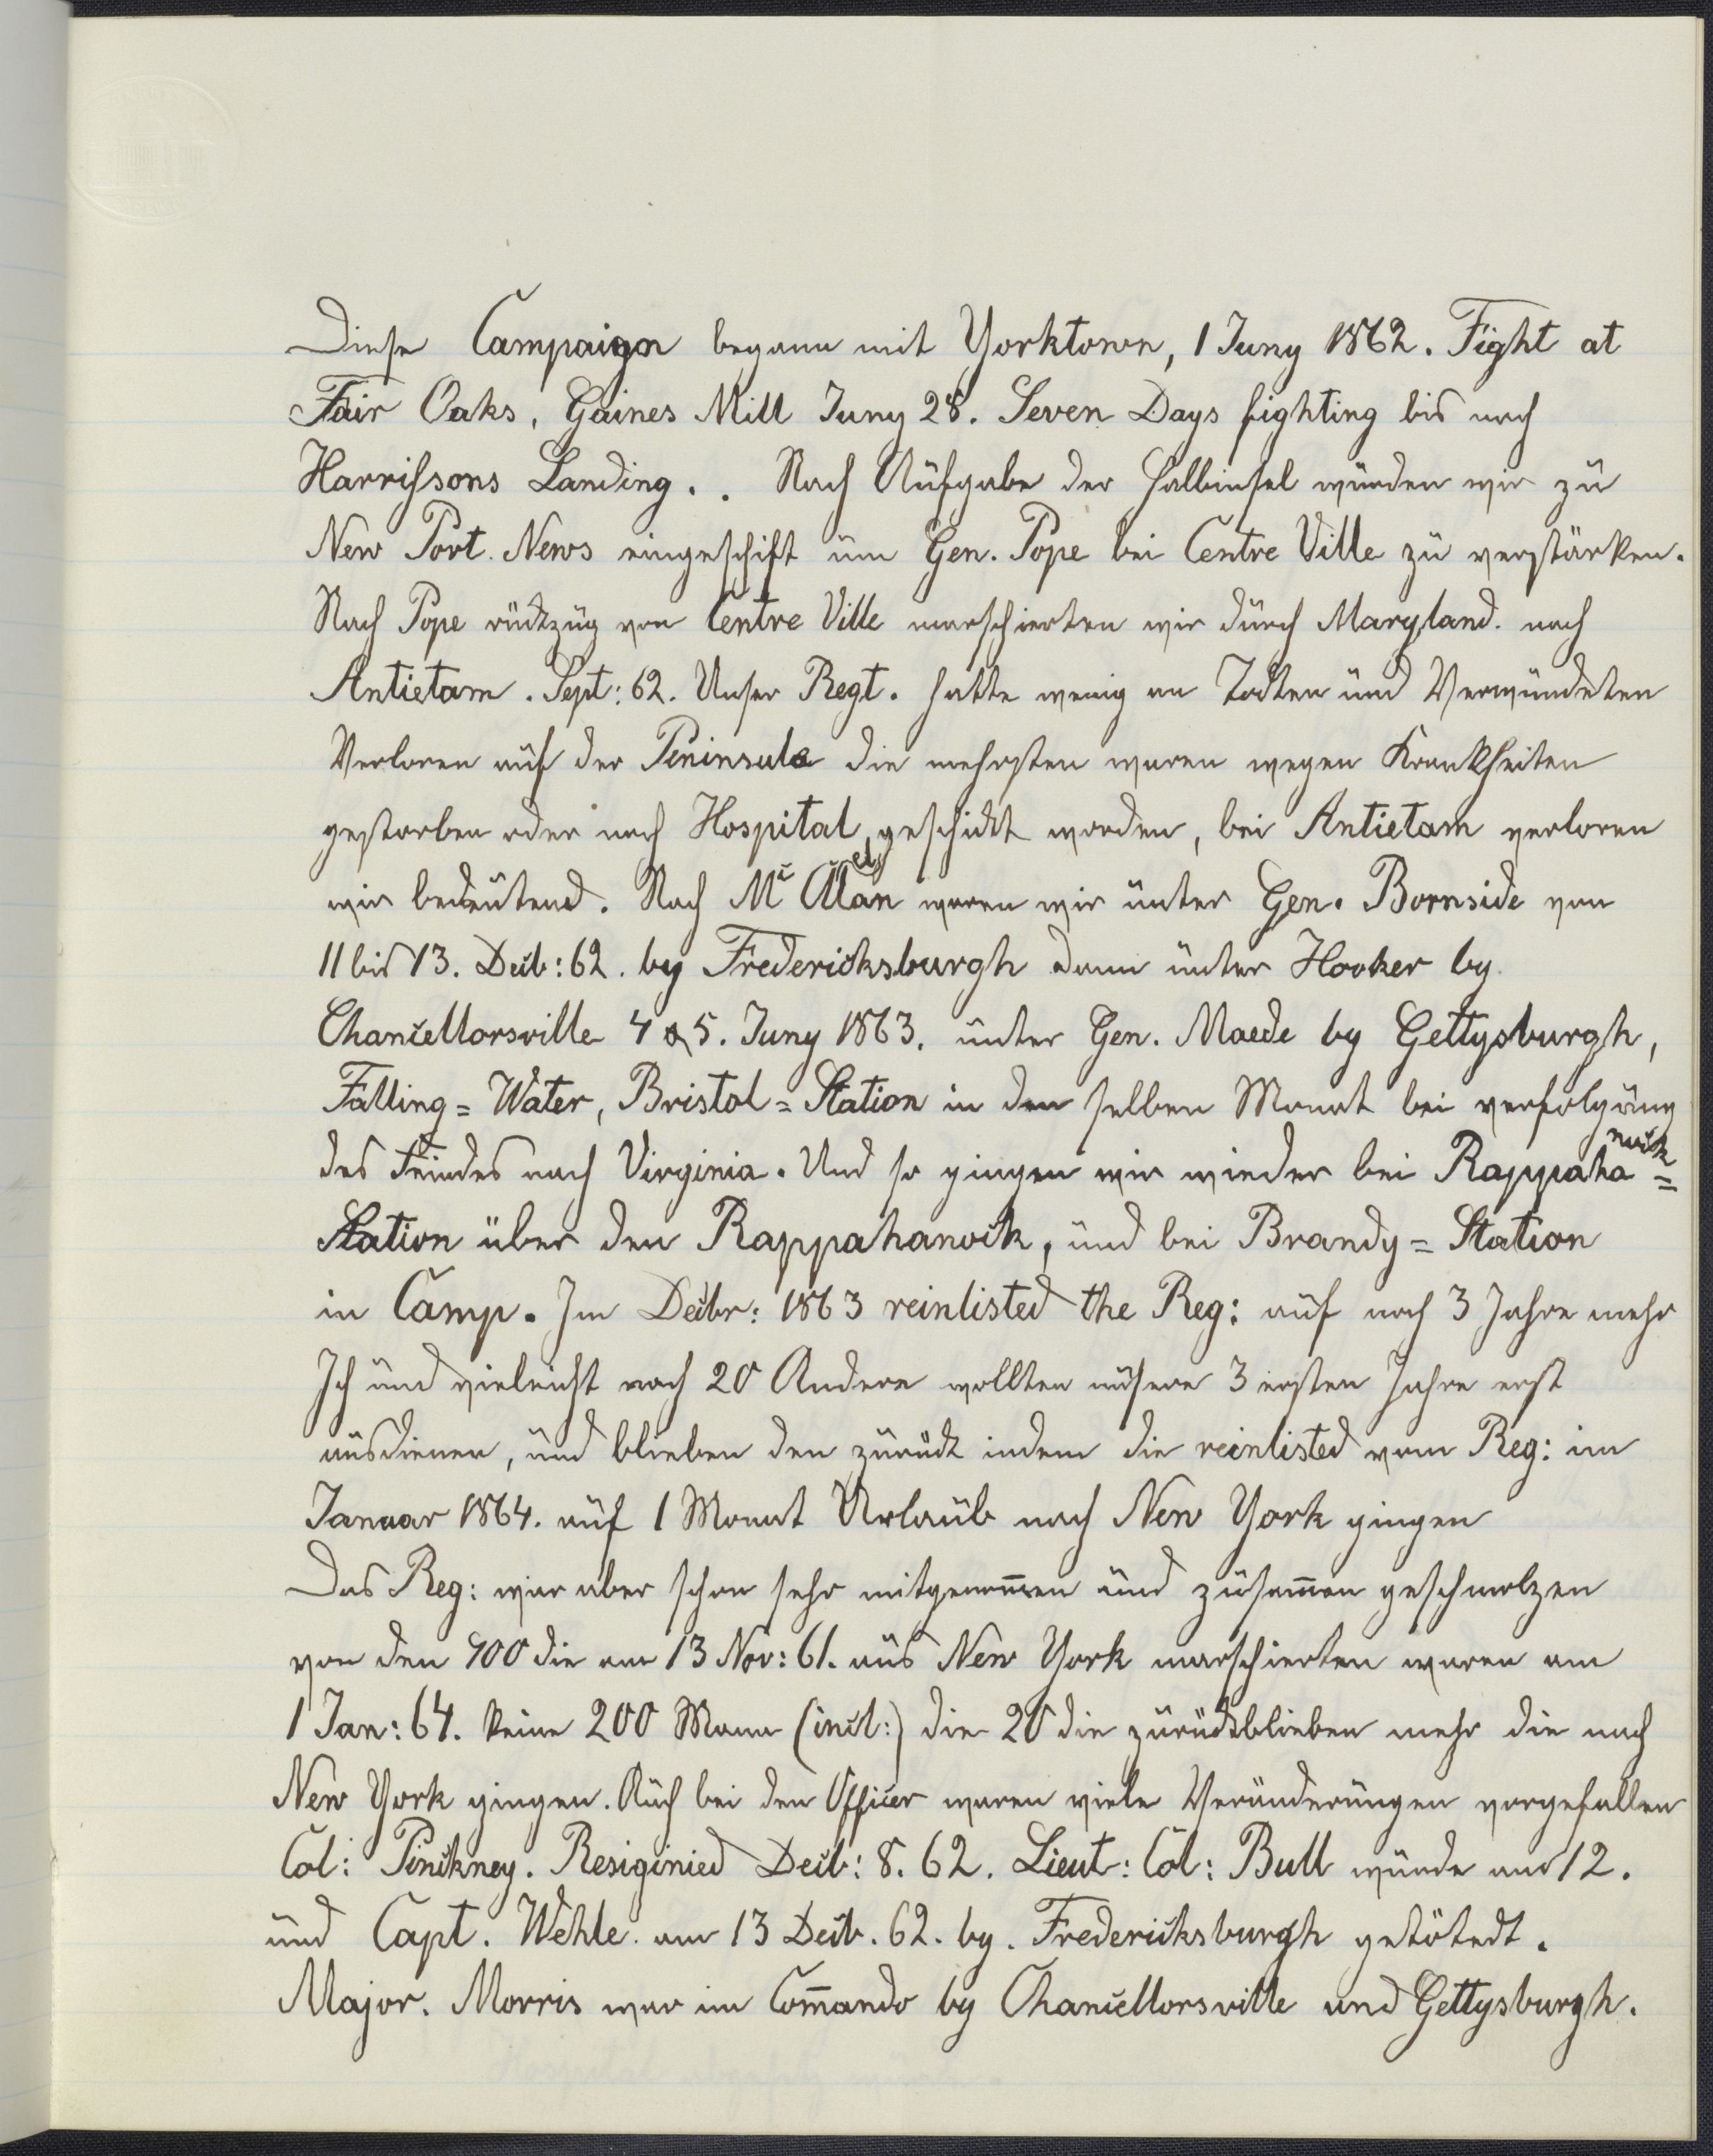 Diese Campaign begann mit Yorktown, 1 Juny 1862. Fight at
Fair Oaks, Gaines Mill Juny 28. Seven Days fighting bis nach
Harrissons Landing. . Nach Aufgabe der Halbinsel wurden wir zu
New Port. News eingeschift um Gen. Pope bei Centre Ville zu verstärken.
Nach Pope rückzug von Centre Ville marschierten wir durch Maryland. nach
Antietam. Sept: 62. Unser Regt. hatte wenig an Todten und Verwundeten
Verloren auf der Peninsula die mehrsten waren wegen Krankheiten
gestorben oder nach Hospital, geschickt worden, bei Antietam verloren
wir bedeutend. Nach Mc Clelan waren wir unter Gen. Bornside von
11 bis 13. Decb: 62. by Fredericksburgh dann unter Hooker by
Chancellorsville 4 & 5. Juny 1863. unter Gen. Maede by Gettysburgh,
Falling=Water, Bristol=Station in den selben Monat bei verfolgung
des Feindes nach Virginia. Und so gingen wir wieder bei Rappahanock=
Station über den Rappahanock, und bei Brandy=Station
in Camp. Im Decbr: 1863 reinlisted the Reg: auf noch 3 Jahre mehr
Ich und vieleicht noch 20 Andere wollten unsere 3 ersten Jahre erst
ausdienen, und blieben den zurück indem die reinlisted vom Reg: im
Januar 1864. auf 1 Monat Urlaub nach New York gingen
Das Reg: war aber schon sehr mitgenom̅en und zusam̅en geschmolzen
von den 900 die am 13 Nov: 61. aus New York marschierten waren am
1 Jan: 64. keine 200 Mann (incl:) die 20 die zurückblieben mehr die nach
New York gingen. Auch bei den Officer waren viele Veränderungen vorgefallen
Col: Pinckney. Resiginied Decb: 8. 62. Lieut: Col: Bull wurde am 12.
und Capt. Wehle. am 13 Decb. 62. by. Fredericksburgh getötedt.
Major. Morris war im Com̅ando by Chancellorsville und Gettysburgh.